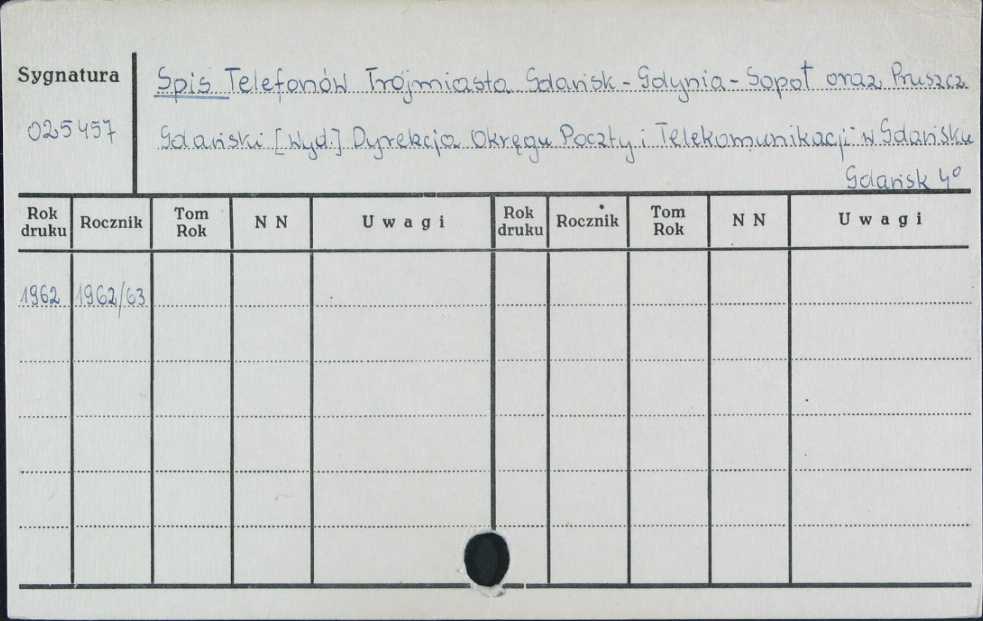 Sygnatura
025457
Spis Telefonów Trójmiasta Gdańsk - Gdynia - Sopot oraz Pruszcz
Gdański [Wyd.] Dyrekcja Okręgu Poczty i Telekomunikacji w Gdańsku
Gdańsk 4°
Rok druku Rocznik Tom Rok N N Uwagi Rok druku Rocznik Tom Rok N N Uwagi
1962 1962/63